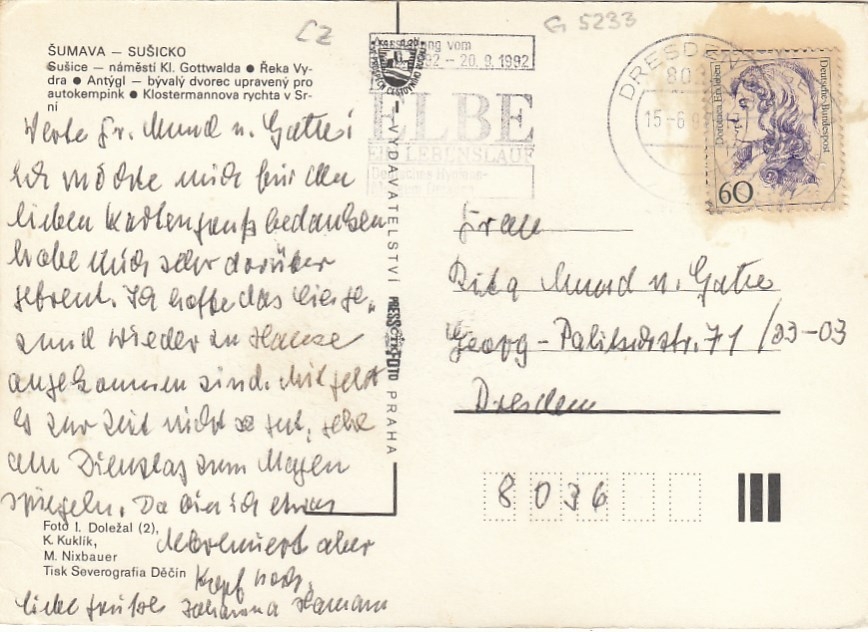 CZ
G 5233
ŠUMAVA — SUŠICKO
Sušice — náměstí Kl. Gottwalda ● Řeka Vy-
dra ● Antýgl — bývalý dvorec upravený pro
autokempink ● Klostermannova rychta v Sr-
ní
Werte Fr. Mund u. Gatte!
Ich möchte mich für den
lieben Kartengruß bedanken
habe mich sehr darüber
gefreut. Ich hoffe das Sie ge-
sund wieder zu Hause
angekommen sind. Mir geht
es zur Zeit nicht so gut, gehe
am Dienstag zum Magen
spiegeln. Da bin ich etwas
deprimiert aber
Kopf hoch.
Liebe Grüße Johanna Hamann
Foto I. Doležal (2),
K. Kuklík,
M. Nixbauer
Tisk Severografia Děčín
VYDAVATELSTVÍ PRESSFOTO PRAHA
ng vom
92 – 20.9.1992
ELBE
EIN LEBENSLAUF
DRESDEN
80
15-6
Dorothea Erxleben
Deutsche Bundespost
60
Frau
Rita Mund u. Gatte
Georg-Palitzschstr. 71 / 23-03
Dresden
8036